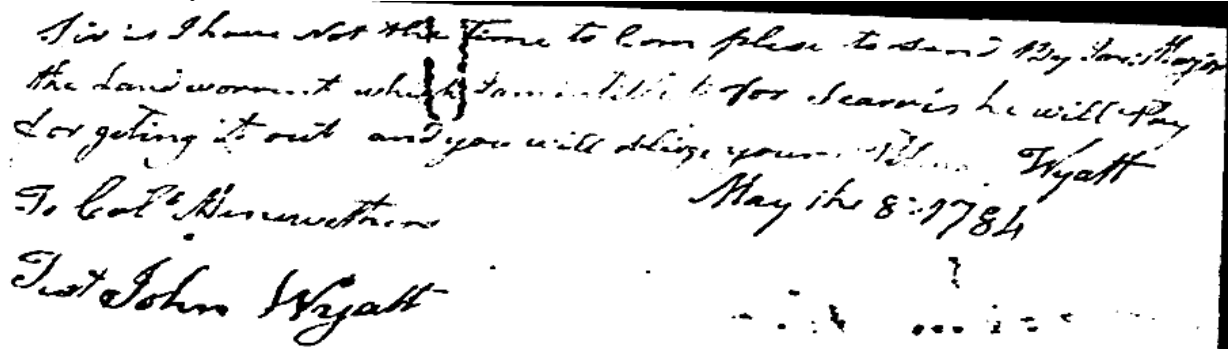 Sir as I have Not the Time to Com plese to send By James Major
the Land worrent which I am intitle to for Searvis he will Pay
for geting it out and you will oblige yours Wyatt
May the 8: 1784
To Colo Merewethers
Test John Wyatt